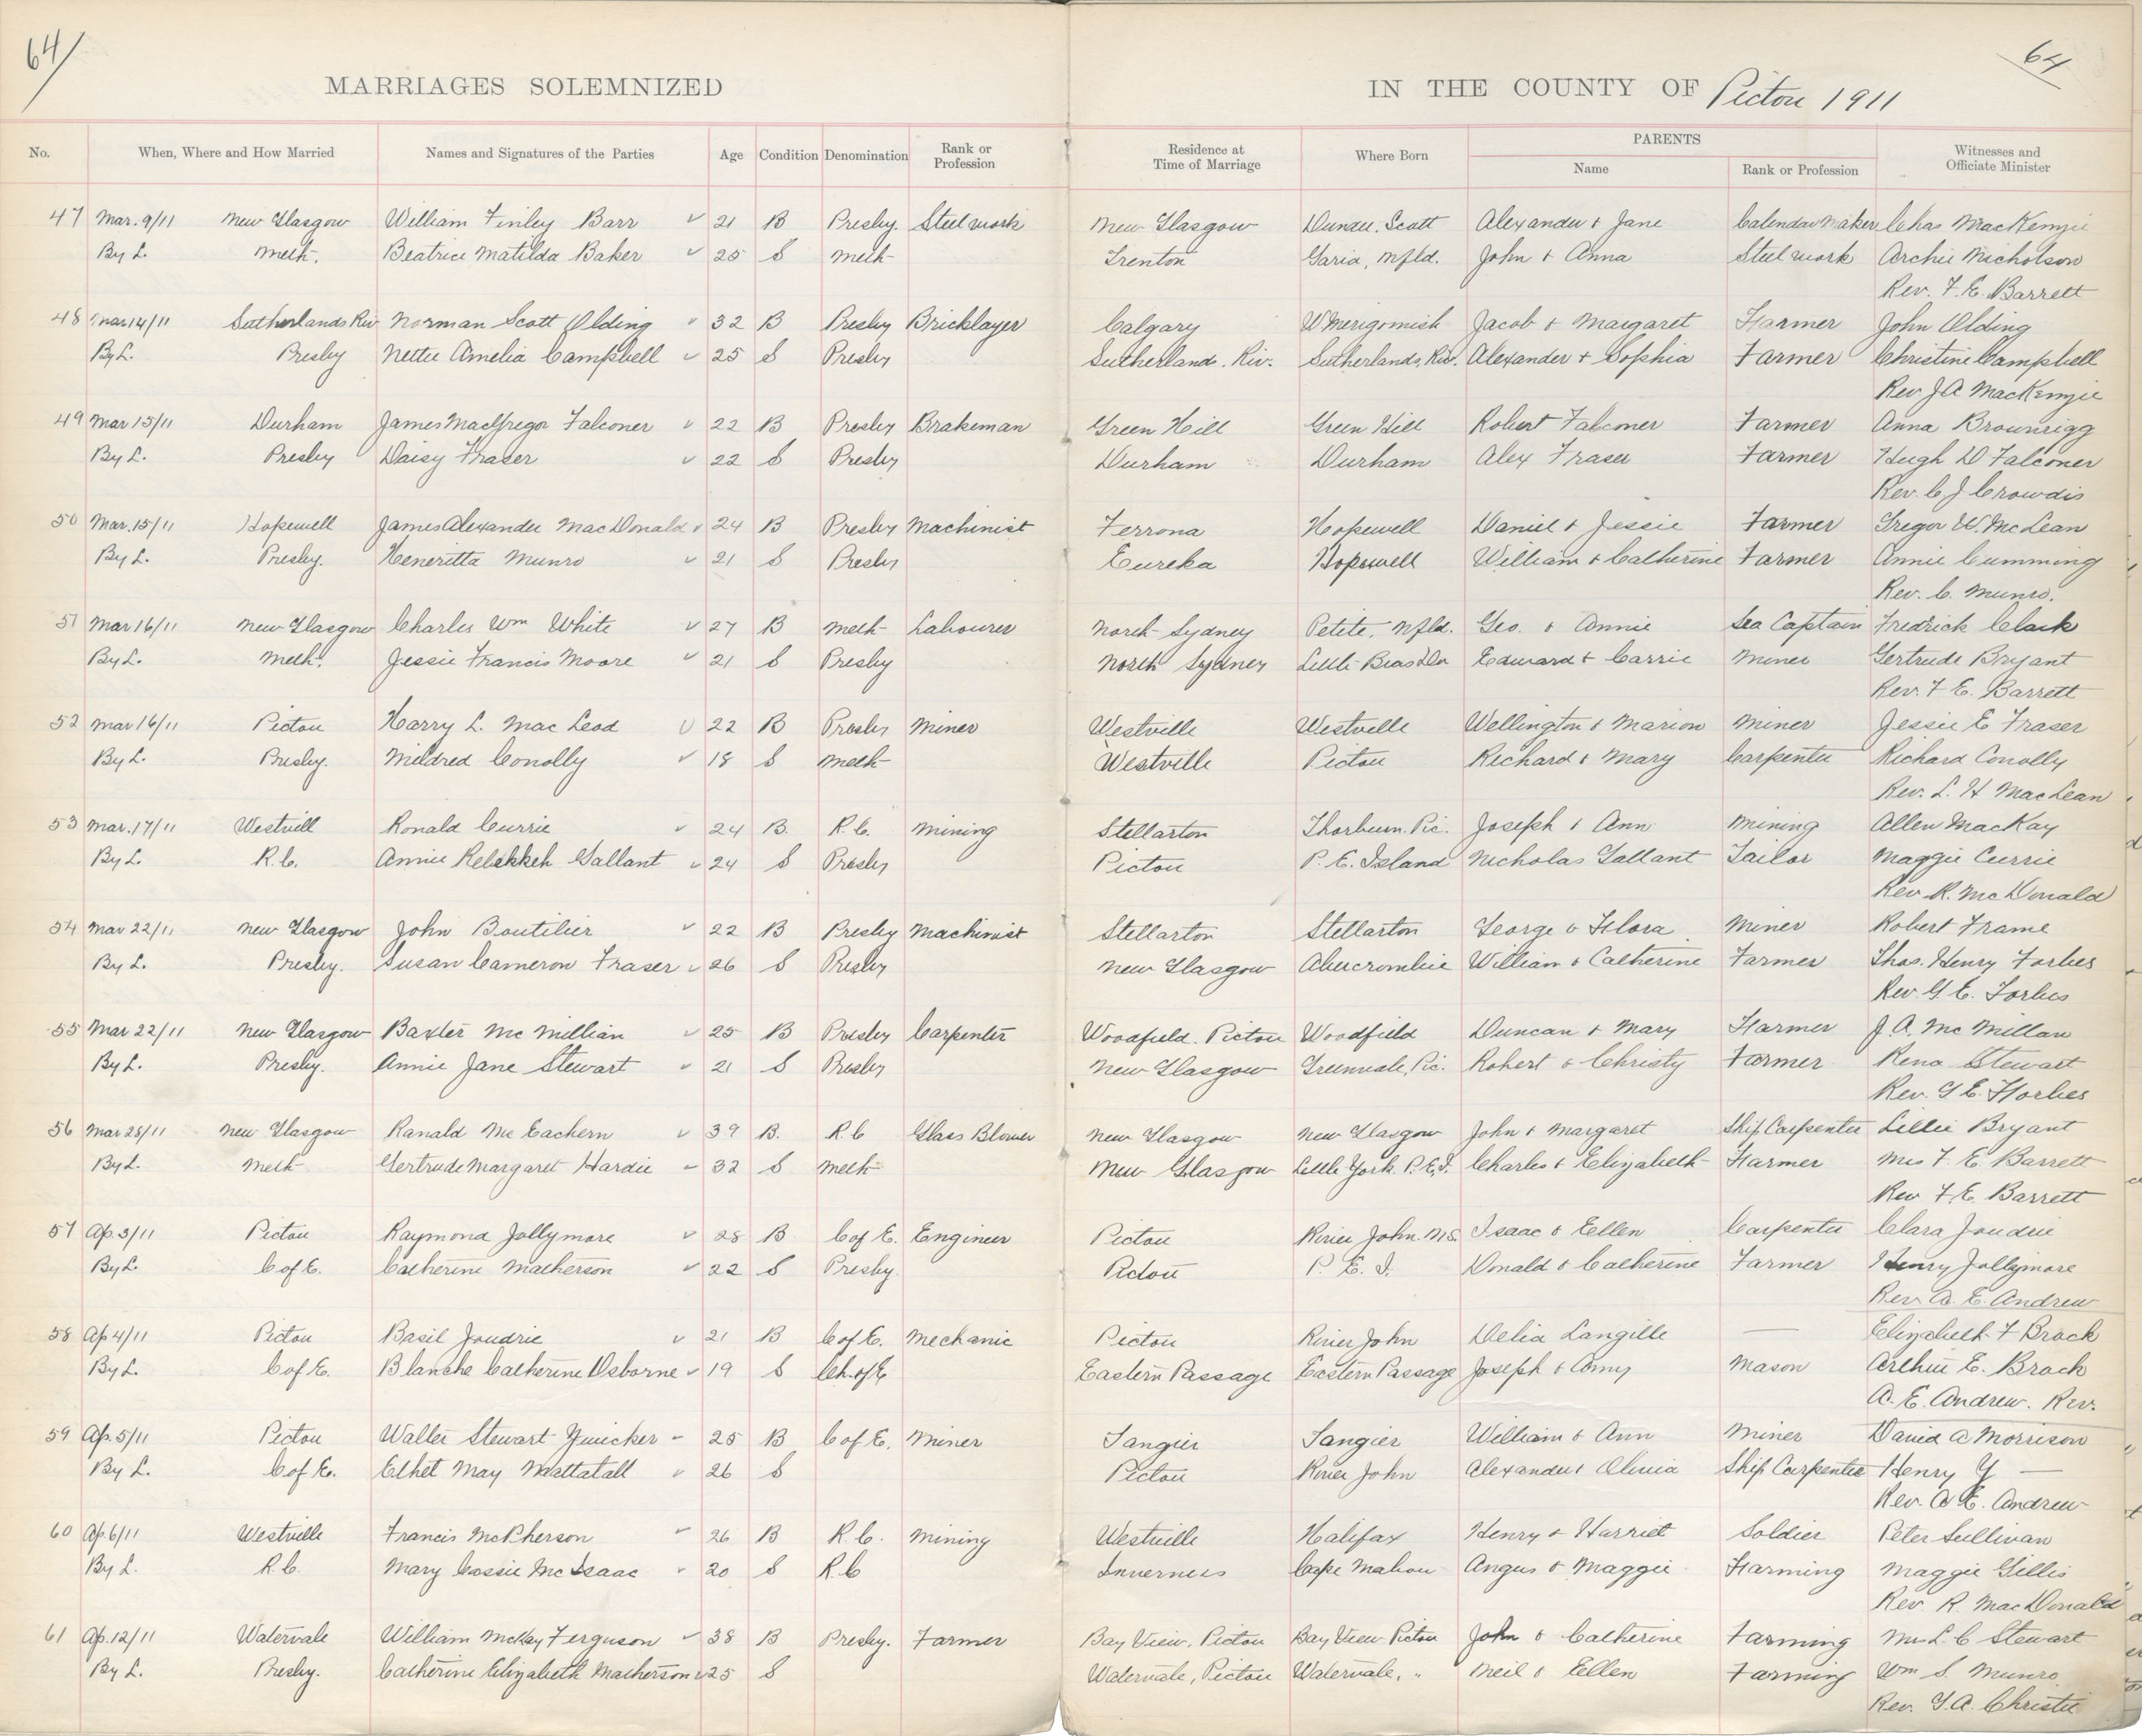 64
64
MARRIAGES SOLEMNIZED IN THE COUNTY OF Pictou 1911
No. When, Where and How Married Names and Signatures of the Parties Age Condition Denomination Rank or Profession Residence at Time of Marriage Where Born PARENTS Name Rank or Profession Witnesses and Officiate Minister
47 Mar. 9/11 New Glasgow William Finley Barr 21 B Presby. Steel work New Glasgow Dundee. Scott Alexander & Jane Calendar Maker Chas MacKenzie
By L. Meth. Beatrice Matilda Baker 25 S Meth Trenton Garia, Nfld. John & Anna Steel work Archie Nicholson
Rev. F. E. Barrett
48 Mar 14/11 Sutherlands Riv Norman Scott Olding 32 B Presby Bricklayer Calgary W Merigomish Jacob & Margaret Farmer John Olding
By L. Presby Nettie Amelia Campbell 25 S Presby Sutherland. Riv. Sutherlands, Riv. Alexander & Sophia Farmer Christine Campbell
Rev J A MacKenzie
49 Mar 15/11 Durham James MacGregor Falconer 22 B Presby Brakeman Green Hill Green Hill Robert Falconer Farmer Anna Brownrigg
By L. Presby Daisy Fraser 22 S Presby Durham Durham Alex Fraser Farmer Hugh D Falconer
Rev. C J Crowdis
50 Mar. 15/11 Hopewell James Alexander MacDonald 24 B Presby Machinist Ferrona Hopewell Daniel & Jessie Farmer Gregor W. McLean
By L. Presby. Heneritta Munro 21 S Presby Eureka Hopewell William & Catherine Farmer Annie Cumming
Rev. C. Munro.
51 Mar 16/11 New Glasgow Charles Wm White 27 B Meth Labourer North Sydney Petite, Nfld. Geo. & Annie Sea Captain Fredrick Clark
By L. Meth. Jessie Francis Moore 21 S Presby North Sydney Little Bras Dor Edward & Carrie Miner Gertrude Bryant
Rev. F E. Barrett
52 Mar 16/11 Pictou Harry L. Mac Leod 22 B Presby Miner Westville Westville Wellington & Marion Miner Jessie E Fraser
By L. Presby. Mildred Conolly 18 S Meth Westville Pictou Richard & Mary Carpenter Richard Conolly
Rev. L. H MacLean
53 Mar. 17/11 Westvill Ronald Currie 24 B. R. C. Mining Stellarton Thorburn. Pic. Joseph & Ann Mining Allen MacKay
By L. R. C. Annie Rebekkeh Gallant 24 S Presby Pictou P. E. Island Nicholas Gallant Tailor Maggie Currie
Rev R. McDonald
54 Mar 22/11 New Glasgow John Boutilier 22 B Presby Machinist Stellarton Stellarton George & Flora Miner Robert Frame
By L. Presby. Susan Cameron Fraser 26 S Presby New Glasgow Abercrombie William & Catherine Farmer Thos. Henry Forbes
Rev. G E. Forbes
55 Mar 22/11 New Glasgow Baxter Mc Millian 25 B Presby Carpenter Woodfield. Pictou Woodfield Duncan & Mary Farmer J. A. Mc Millan
By L. Presby. Annie Jane Stewart 21 S Presby New Glasgow Greenvale, Pic. Robert & Christy Farmer Rena Stewart
Rev. G E. Forbes
56 Mar 28/11 New Glasgow Ranald Mc Eachern 39 B. R. C Glass Blower New Glasgow New Glasgow John & Margaret Ship Carpenter Lillie Bryant
By L. Meth Gertrude Margaret Hardie 32 S Meth New Glasgow Little York P. E. I. Charles & Elizabeth Farmer Mrs F. E Barrett
Rev F. E. Barrett
57 Ap. 3/11 Pictou Raymond Jollymore 28 B C of E. Engineer Pictou River John. N.S. Isaac & Ellen Carpenter Clara Joudrie
By L. C of E. Catherine Matherson 22 S Presby. Pictou P. E. I. Donald & Catherine Farmer Henry Jollymore
Rev A. E. Andrew
58 Ap 4/11 Pictou Basil Joudrie 21 B C of E. Mechanic Pictou River John Delia Langille — Elizabeth F Brock
By L. C of E. Blanche Catherine Osborne 19 S Ch. of E Eastern Passage Eastern Passage Joseph & Amy Mason Arthur E. Brock
A. E. Andrew. Rev.
59 Ap. 5/11 Pictou Walter Stewart Zwicker 25 B C of E. Miner Tangier Tangier William & Ann Miner David A Morrison
By L. C of E. Ethel May Mattatall 26 S Pictou River John Alexander & Olivia Ship Carpenter Henry Y —
Rev. A E. Andrew
60 Ap. 6/11 Westville Francis McPherson 26 B R. C. Mining Westville Halifax Henry & Harriet Soldier Peter Sullivan
By L. R. C. Mary Cassie McIsaac 20 S R. C Inverness Cape Mabou Angus & Maggie Farming Maggie Gillis
Rev. R. MacDonald
61 Ap. 12/11 Watervale William McKay Ferguson 38 B Presby. Farmer Bay View, Pictou Bay View Pictou John & Catherine Farming Mrs L. C Stewart
By L. Presby. Catherine Elizabeth Matherson 25 S Watervale, Pictou Watervale, " Neil & Ellen Farming Wm S. Munro
Rev. G. A. Christie